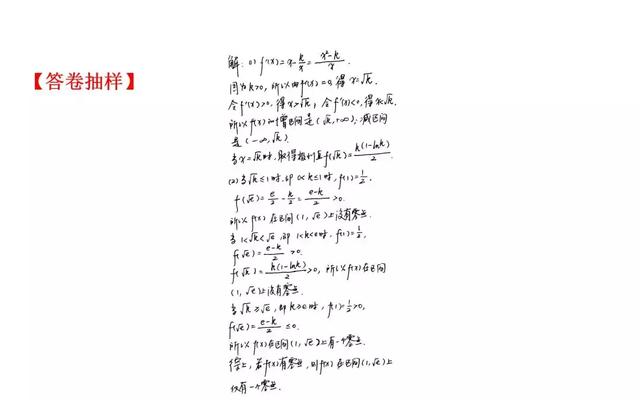 【答卷抽样】
解:(1) f'(x)=x-k/x=(x²-k)/x.
因为k>0,所以由f'(x)=0,得x=√k.
令f'(x)>0,得x>√k;令f'(x)<0,得x<√k.
所以f(x)的增区间是(√k,+∞);减区间
是(-∞,√k).
当x=√k时,取得极小值f(√k)=k(1-lnk)/2.
(2)当√k≤1时,即0<k≤1时,f(1)=1/2,
f(√e)=e/2-k/2=(e-k)/2>0.
所以f(x)在区间(1,√e)上没有零点.
当1<√k<√e,即1<k<e时,f(1)=1/2,
f(√e)=(e-k)/2>0.
f(√k)=k(1-lnk)/2>0,所以f(x)在区间
(1,√e)上没有零点.
当√k≥√e,即k≥e时,f(1)=1/2>0,
f(√e)=(e-k)/2≤0.
所以f(x)在区间(1,√e)上有一个零点.
综上,若f(x)有零点,则f(x)在区间(1,√e)上
仅有一个零点.